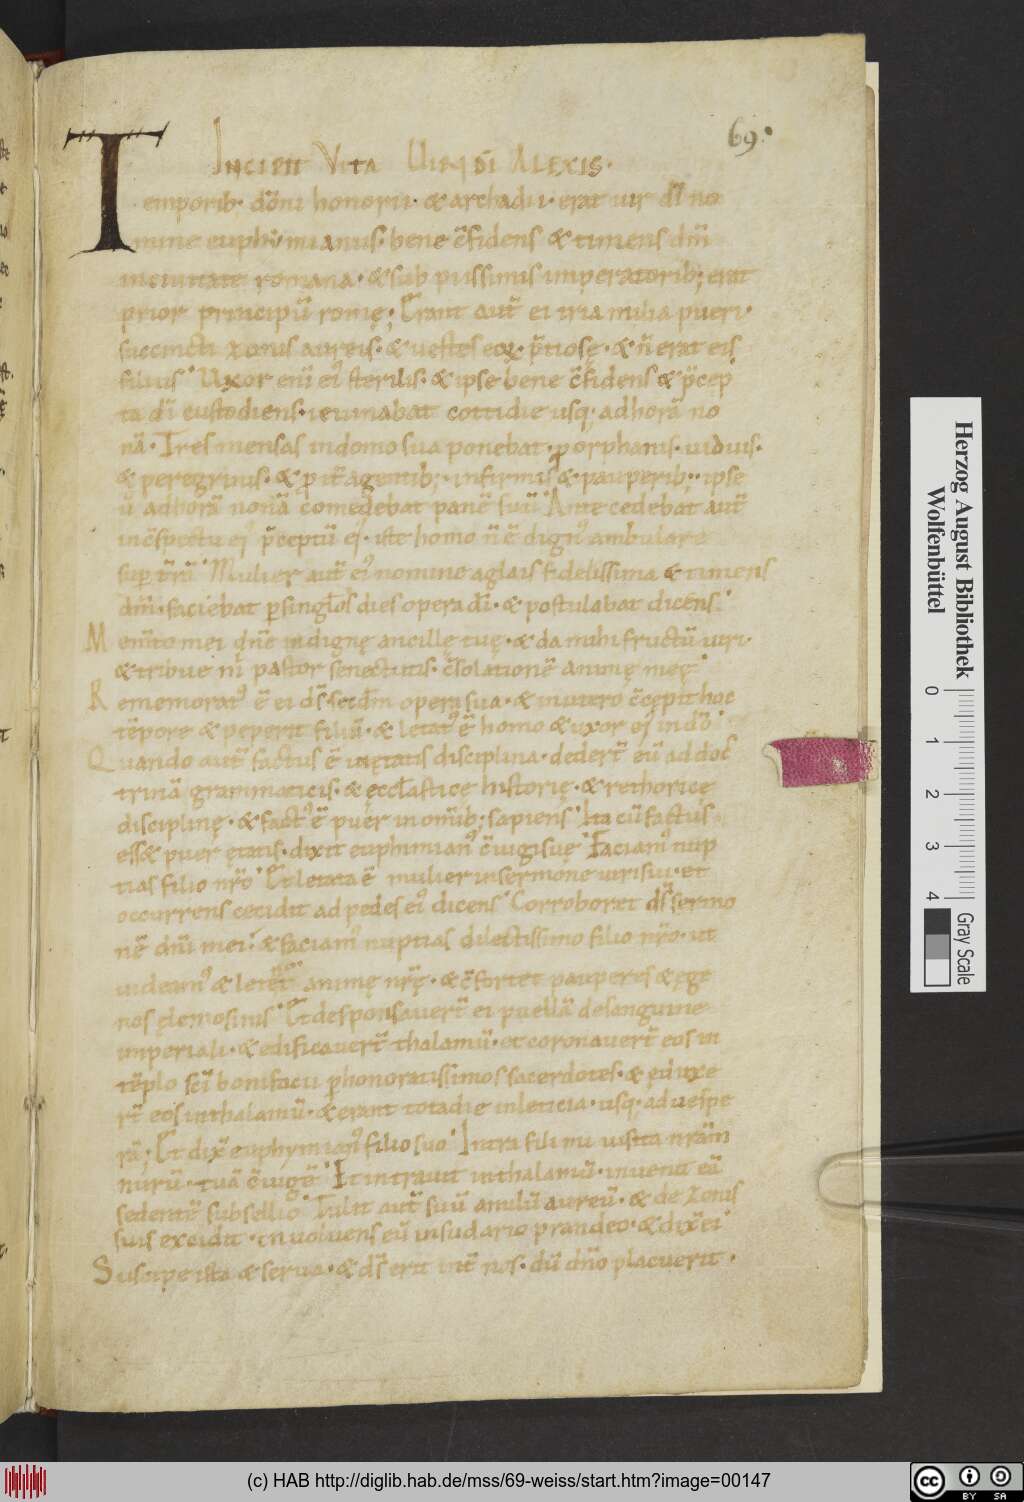 69.
INCIPIT VITA UIRI DĪ ALEXIS.
Temporib· dōni honorii· & archadii· erat uir dī no
mine euphimianus· bene c̄fidens & timens dm̄
inciuitate romana· & sub piissimis imperatorib; erat
prior principū romę; Erant aut̄ ei tria milia pueri·
succincti zonis aureis· & uestes eoꝝ p̄tiosę· & n̄ erat eis
filius· Uxor eni ei᾿ sterilis· & ipse bene c̄fidens & p̄cep
ta dī custodiens· ieiunabat cottidie usq; ad horā no
nā· Tres mensas indomo sua ponebat· ꝓ orphanis· uiduis·
& peregrinis· & ꝑ it̄ agentib; infirmis & pauperib· ipse
ū adhorā nonā comedebat panē suū· Ante cedebat aut̄
inc̄spectu ei᾿ p̄ceptū ei᾿· iste homo n̄ ē dign᾿ ambulare
sup t̄rā· Mulier aut̄ ei᾿ nomine aglais fidelissima & timens
dm̄· faciebat ꝑ singlos dies opera dī· & postulabat dicens·
Mem̄to mei dn̄e indignę ancillę tuę· & da mihi fructū uiri·
& tribue m̄ pastor senectutis· c̄solationē animę meę·
Rememorat᾿ ē ei ds̄ scdm̄ opera sua· & inutero c̄cepit hoc
tēpore & peperit filiū· & letat᾿ ē homo & uxor ei᾿ in dō·
Quando aut̄ factus ē inętatis disciplina· dedert̄ eū ad doc
trinā grammaticis· & ęccl̄astice historię· & rethoricę
disciplinę· & fact᾿ ē puer in omīb; sapiens· Ita cū factus
ess& puer ętatis· dixit euphimian᾿ c̄iugi suę· Faciam᾿ nup
tias filio nr̄o· Et letata ē mulier insermone uiri sui· et
occurrens cecidit ad pedes ei᾿ dicens· Corroboret ds̄ sermo
nē dn̄i mei· & faciam᾿ nuptias dilectissimo filio nr̄o· ut
uideam᾿ & letēt animę nr̄ę· & c̄fortet pauperes & ęge
nos ęlemosinis· Et desponsauert̄ ei puellā desanguine
imperiali· & edificauert̄ thalamū· et coronauert̄ eos in
tēplo scī bonifacii ꝑ honoratissimos sacerdotes· & ęduxe
rt̄ eos inthalamū· & erant totadie inleticia· usq; ad uespe
rā; Et dix̄ euphymian᾿ filio suo· Intra fili mi uisita nrām
nurū· tuā c̄iugē· Et intrauit inthalamū· inuenit eā
sedentē subsellio· Tulit aut̄ suū anulū aureū· & de zonis
suis excidit· inuoluens eū insudario prandeo· & dix̄ ei·
Suscipe ista & serua· & ds̄ erit int̄ nos· dū dn̄o placuerit·
Herzog August Bibliothek
Wolfenbüttel
0 1 2 3 4
Gray Scale
(c) HAB http://diglib.hab.de/mss/69-weiss/start.htm?image=00147
cc BY SA